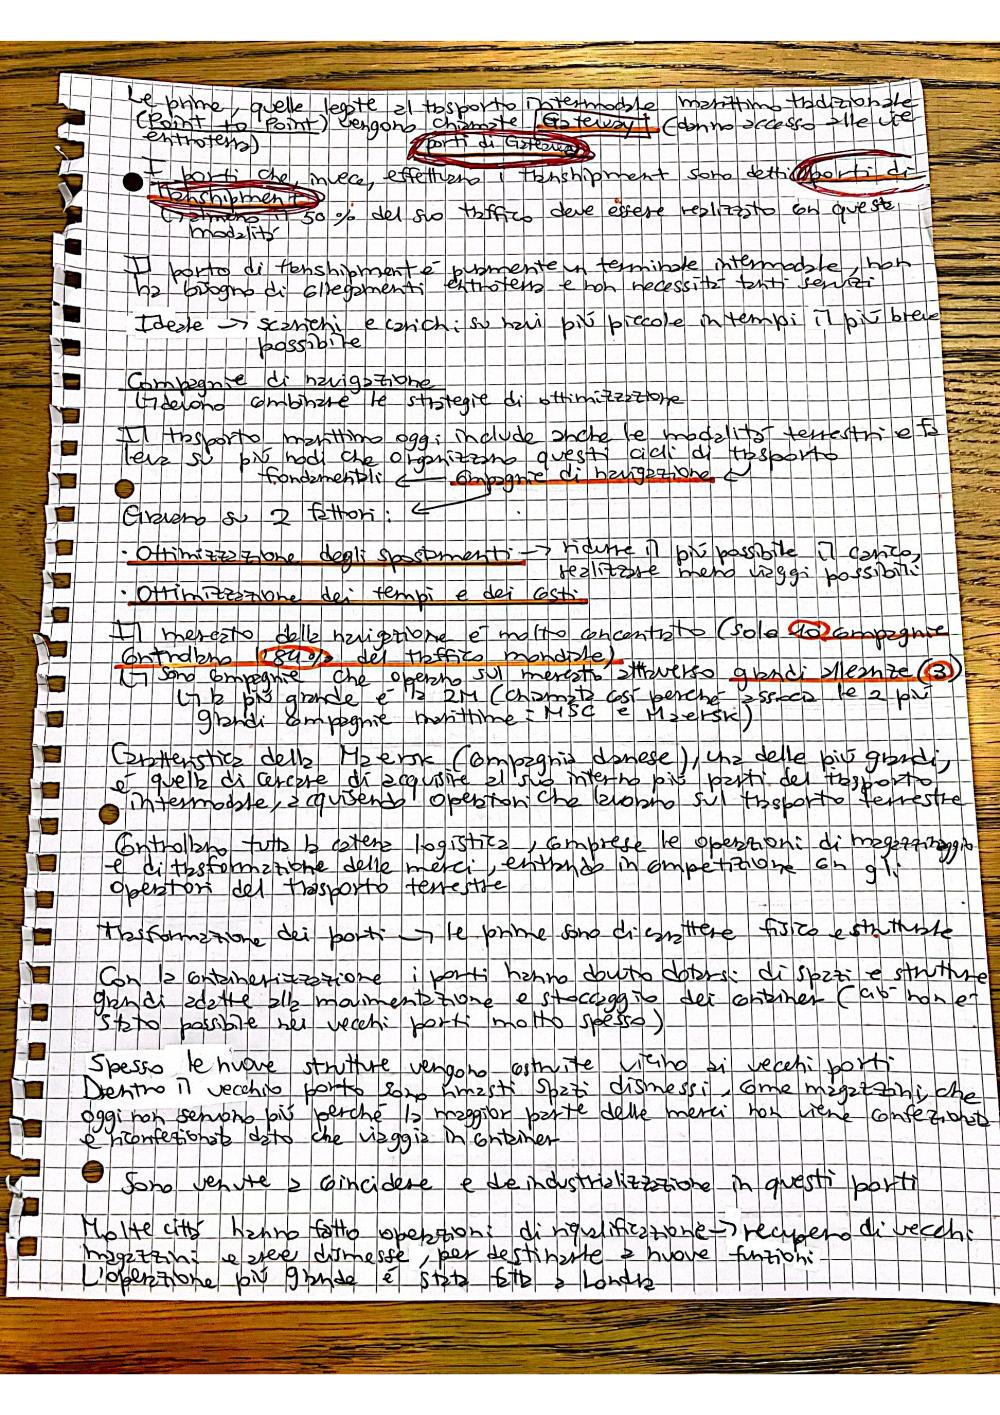 Le prime, quelle legate al trasporto intermodale marittimo tradizionale
(Point to Point) vengono chiamate Gateway (danno accesso alle vie
entroterra) porti di Gateway
I porti che, invece, effettuano i transhipment sono detti porti di
transhipment
↳ almeno il 50% del suo traffico deve essere realizzato con queste
modalità
Il porto di transhipment è puramente un terminale intermodale, non
ha bisogno di collegamenti entroterra e non necessita tanti servizi
Ideale → scarichi e carichi su navi più piccole in tempi il più breve
possibile
Compagnie di navigazione
↳ devono combinare le strategie di ottimizzazione
Il trasporto marittimo oggi include anche le modalità terrestri e fa
leva su più nodi che organizzano questi cicli di trasporto
fondamentali ← compagnie di navigazione
Giravano su 2 fattori:
· Ottimizzazione degli spostamenti → ridurre il più possibile il carico,
realizzare meno viaggi possibili
· Ottimizzazione dei tempi e dei costi
Il mercato della navigazione è molto concentrato (solo 10 compagnie
controllano l'84% del traffico mondiale)
↳ sono compagnie che operano sul mercato attraverso grandi alleanze (3)
↳ la più grande è la 2M (chiamata così perché associa le 2 più
grandi compagnie marittime = MSC e Maersk)
Caratteristica della Maersk (compagnia danese), una delle più grandi,
è quella di cercare di acquisire al suo interno più parti del trasporto
intermodale, acquisendo operatori che lavorano sul trasporto terrestre
Controllano tutta la catena logistica, comprese le operazioni di magazzinaggio
e di trasformazione delle merci, entrando in competizione con gli
operatori del trasporto terrestre
Trasformazione dei porti → le prime sono di carattere fisico e strutturale
Con la containerizzazione i porti hanno dovuto dotarsi di spazi e strutture
grandi adatte alla movimentazione e stoccaggio dei container (ciò non è
stato possibile nei vecchi porti molto spesso)
Spesso le nuove strutture vengono costruite vicino ai vecchi porti
Dentro il vecchio porto sono rimasti spazi dismessi, come magazzini, che
oggi non servono più perché la maggior parte delle merci non viene confezionata
e riconfezionata dato che viaggia in container
Sono venute a coincidere e deindustrializzazione in questi porti
Molte città hanno fatto operazioni di riqualificazione → recupero di vecchi
magazzini e aree dismesse, per destinarle a nuove funzioni
L'operazione più grande è stata fatta a Londra